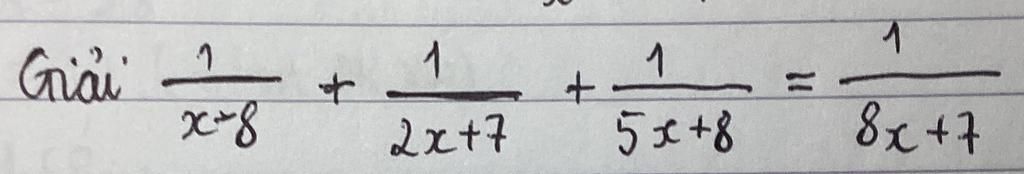 Giải 1/(x-8) + 1/(2x+7) + 1/(5x+8) = 1/(8x+7)